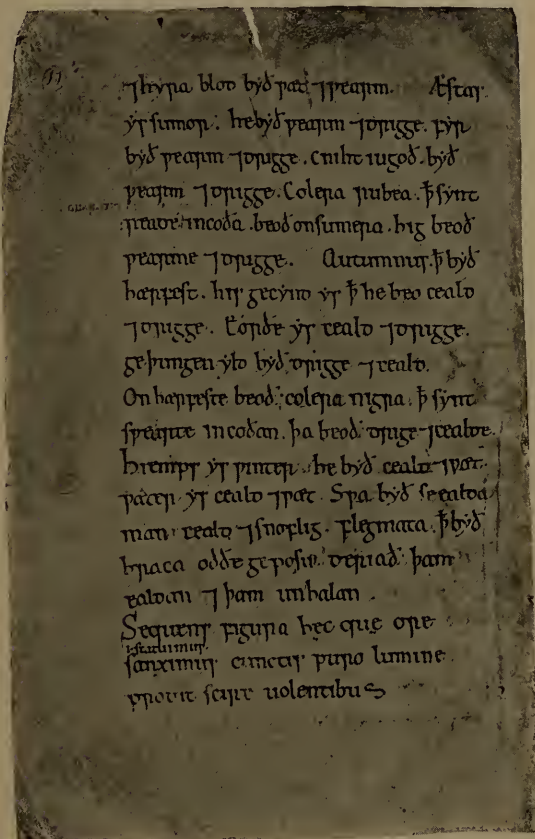 ⁊ hyra blod byð wæt ⁊ wearm. Æstas
ys sumor. he byð wearm ⁊ drigge. fyr
byð wearm ⁊ drigge. cniht iugoð. byð
wearm ⁊ drigge. Colera rubea. ꝥ synt
reade incoða. beoð on sumera. hig beoð
wearme ⁊ drigge. Autumnus. ꝥ byð
hærfest. his gecynd ys ꝥ he beo ceald
⁊ drigge. Eorðe ys ceald ⁊ drigge.
geþungen yld byð drigge ⁊ ceald.
On hærfeste beoð colera nigra. ꝥ synt
swearte incoðan. þa beoð drige ⁊ cealde.
hiemps ys winter. he byð ceald ⁊ wæt.
wæter ys ceald ⁊ wæt. Swa byð se ealda
man ceald ⁊ snoflig. flegmata. ꝥ byð
hraca oððe geposu deriað þam
ealdan ⁊ þam unhalan.
Sequens figura hec que ore
ł statuimus
sanximus cunctis puro lumine
prodit scire uolentibus